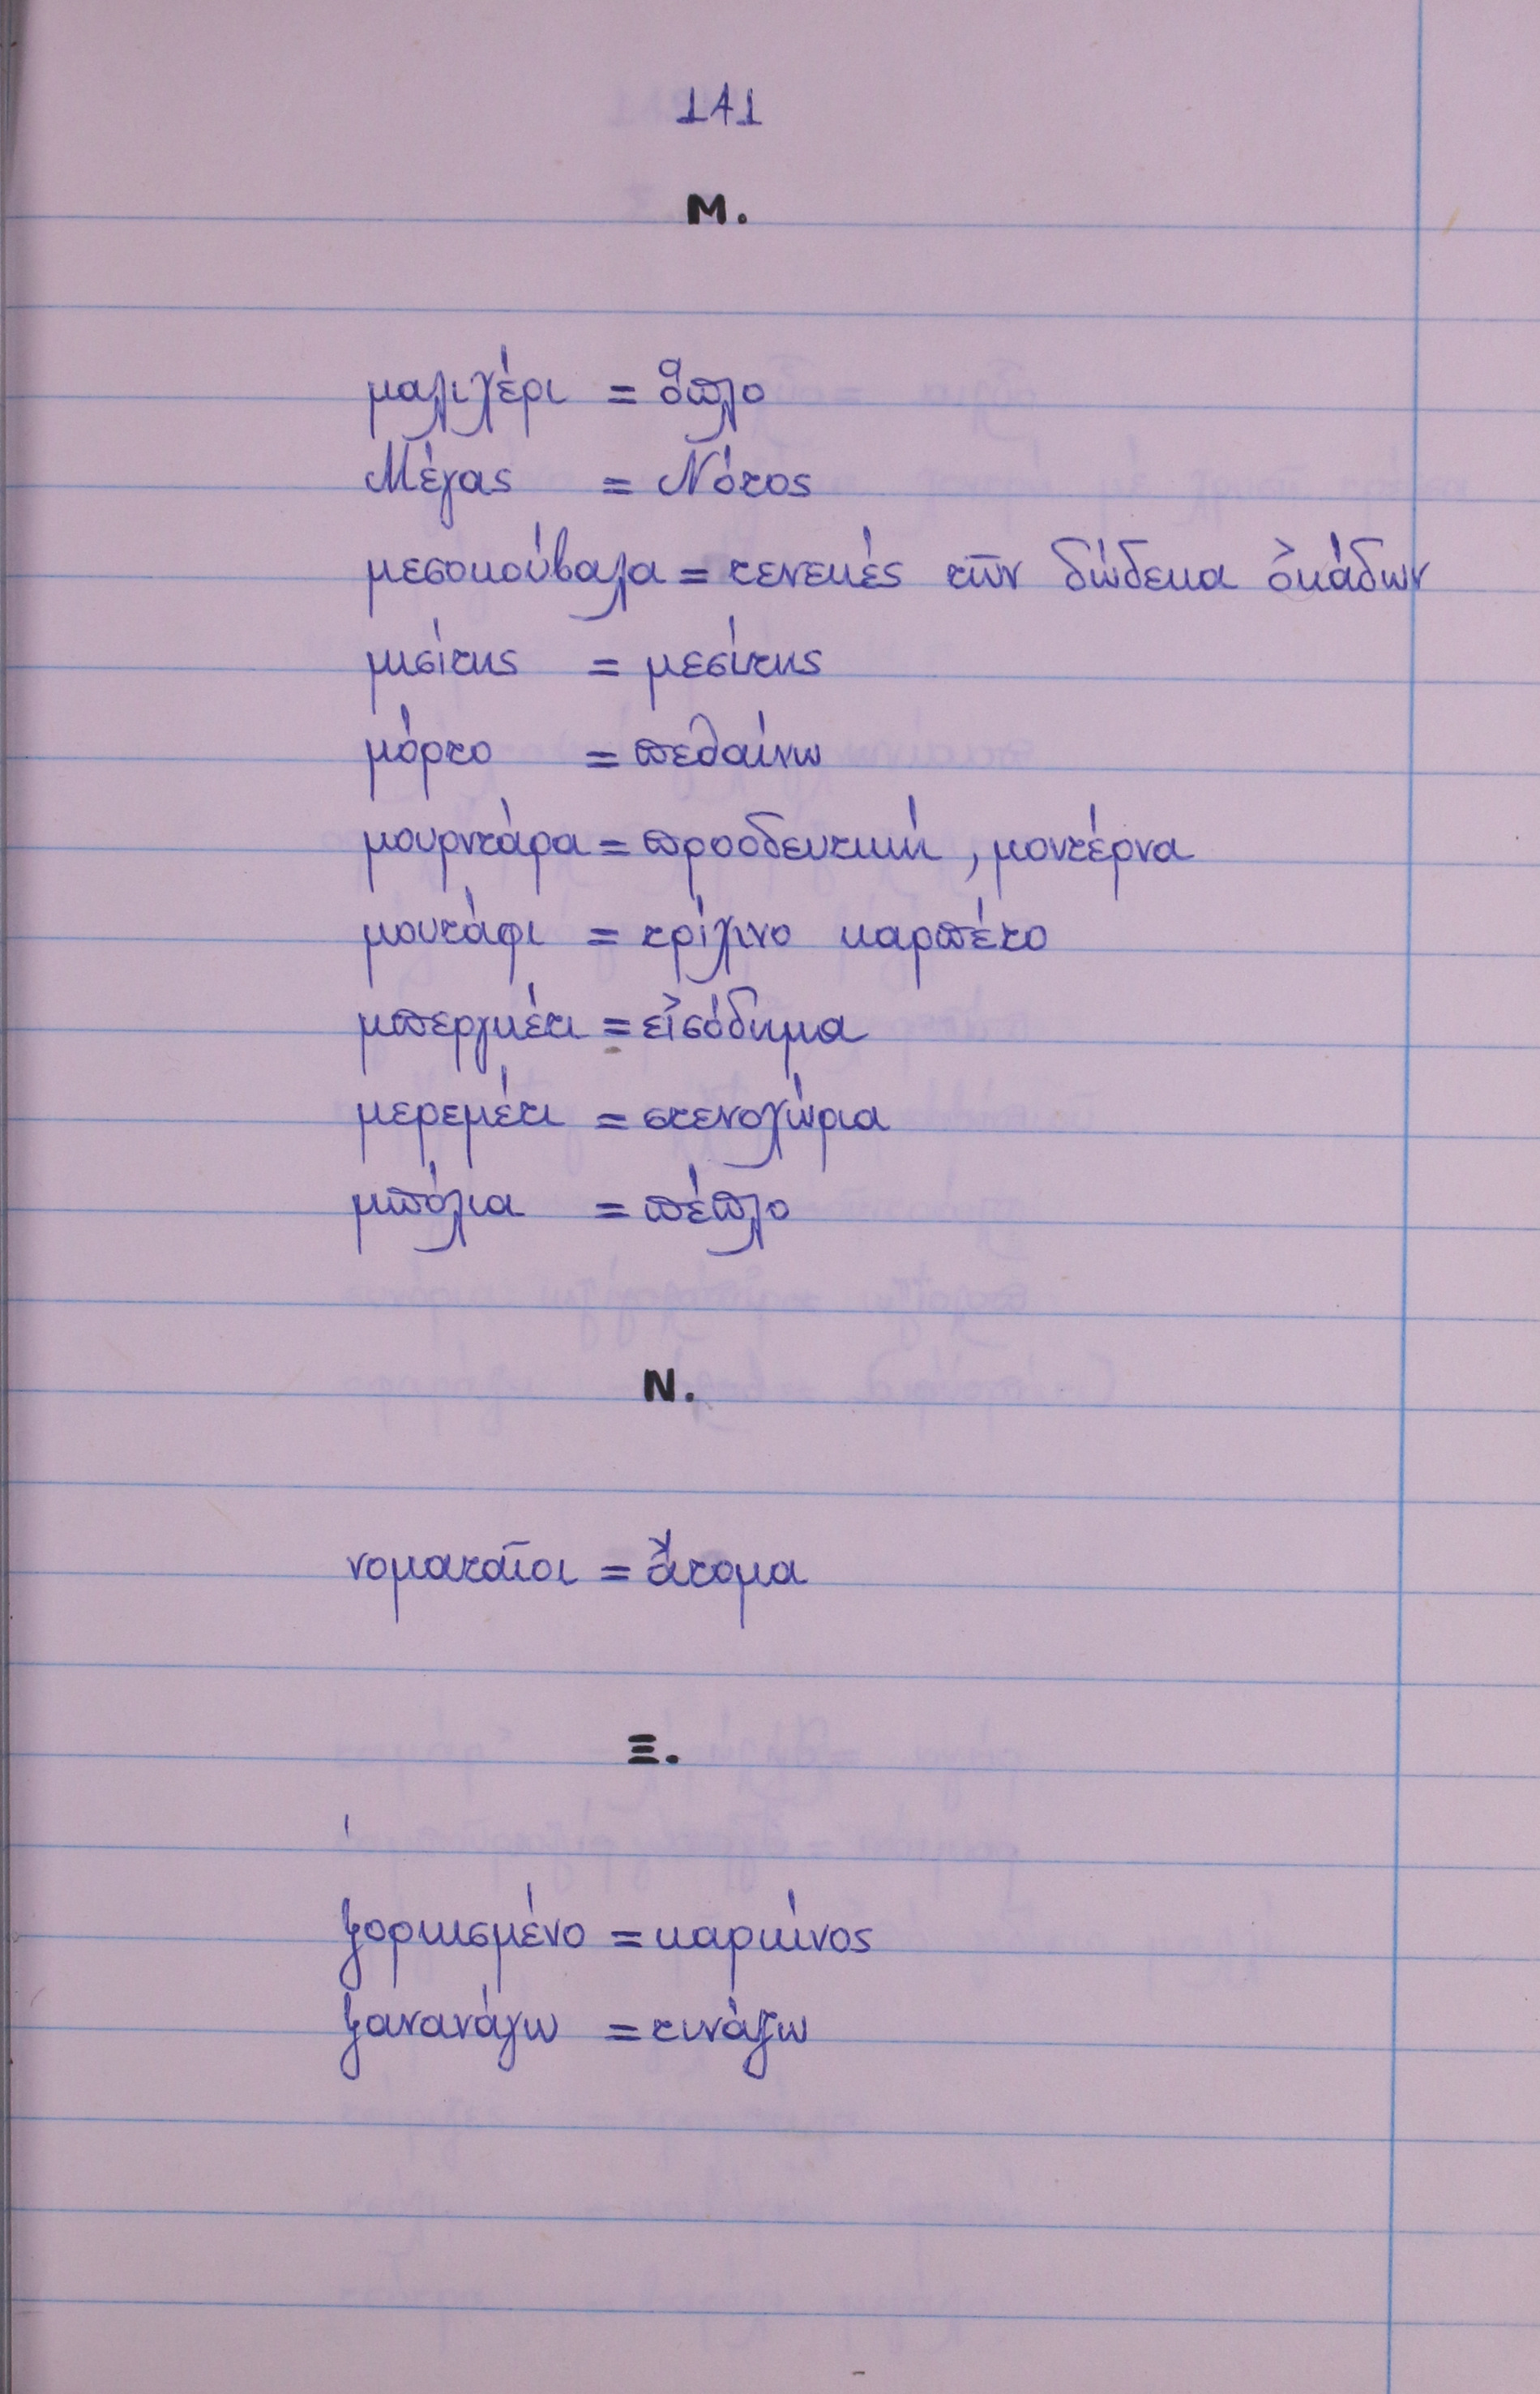 141
Μ.
μαλιχέρι = ὅπλο
Μέγας = Νότος
μεσοκούβαλα = τενεκές τῶν δώδεκα ὀκάδων
μισίτης = μεσίτης
μόρτο = πεθαίνω
μουρντάρα = προοδευτική, μοντέρνα
μουτάφι = τρίχινο καρπέτο
μπεργκέτι = εἰσόδημα
μερεμέτι = στενοχώρια
μπόλια = πέπλο
Ν.
νοματαῖοι = ἄτομα
Ξ.
ξορκισμένο = καρκίνος
ξανανάγω = τινάζω